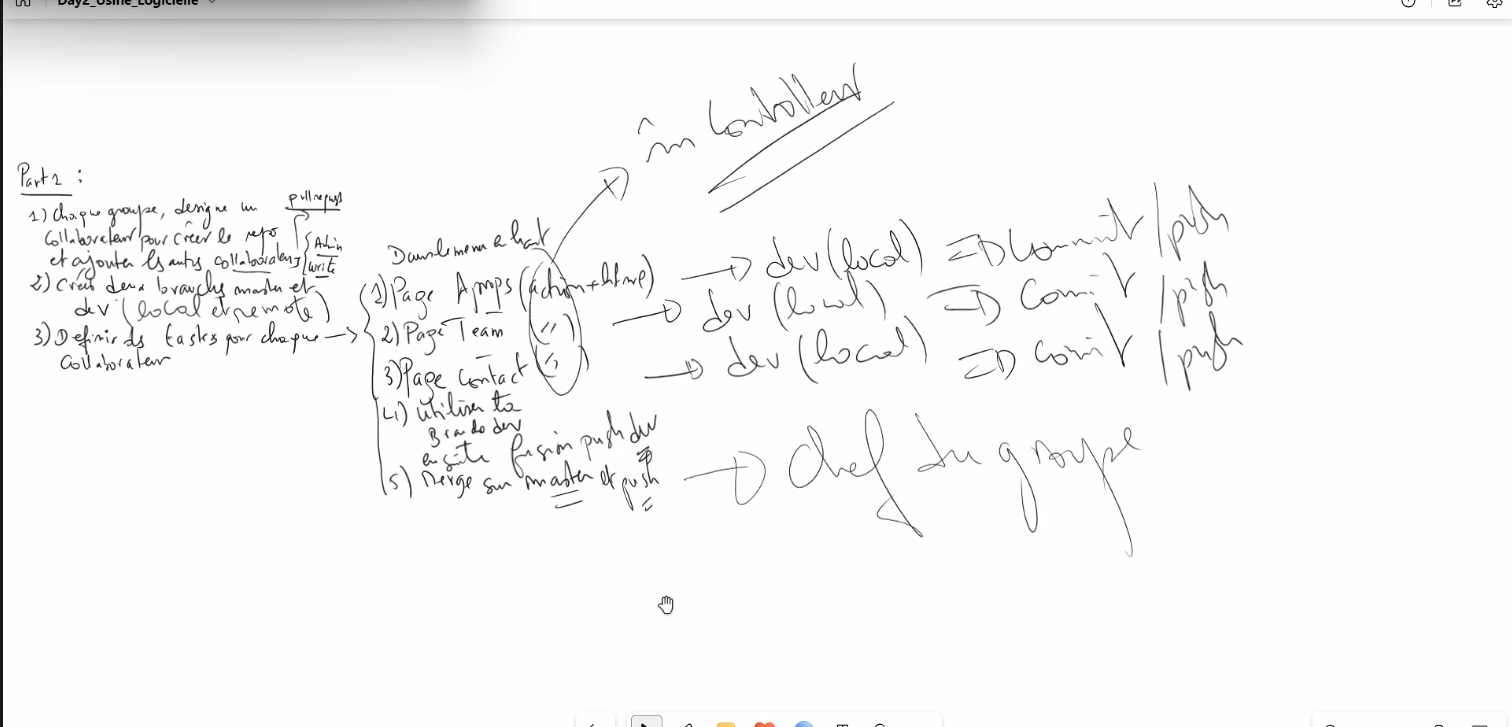 Day2_Usine_Logicielle
in Controllers
Part 2 :
1) Chaque groupe, designe un
collaborateur pour créer le repo
et ajouter les autres collaborateurs
pull request
Admin
write
2) Créer deux branches master et
dev (local et remote)
3) Definir des tasks pour chaque
collaborateur
Dans le menu en haut
1) Page Apropos (action + html) → dev (local) ⇒ Commit / push
2) Page Team ( " ) → dev (local) ⇒ Comit / push
3) Page Contact ( " ) → dev (local) ⇒ Comit / push
4) utiliser la
dev
ensuite fusion push dev
5) Merge sur master et push → chef du groupe